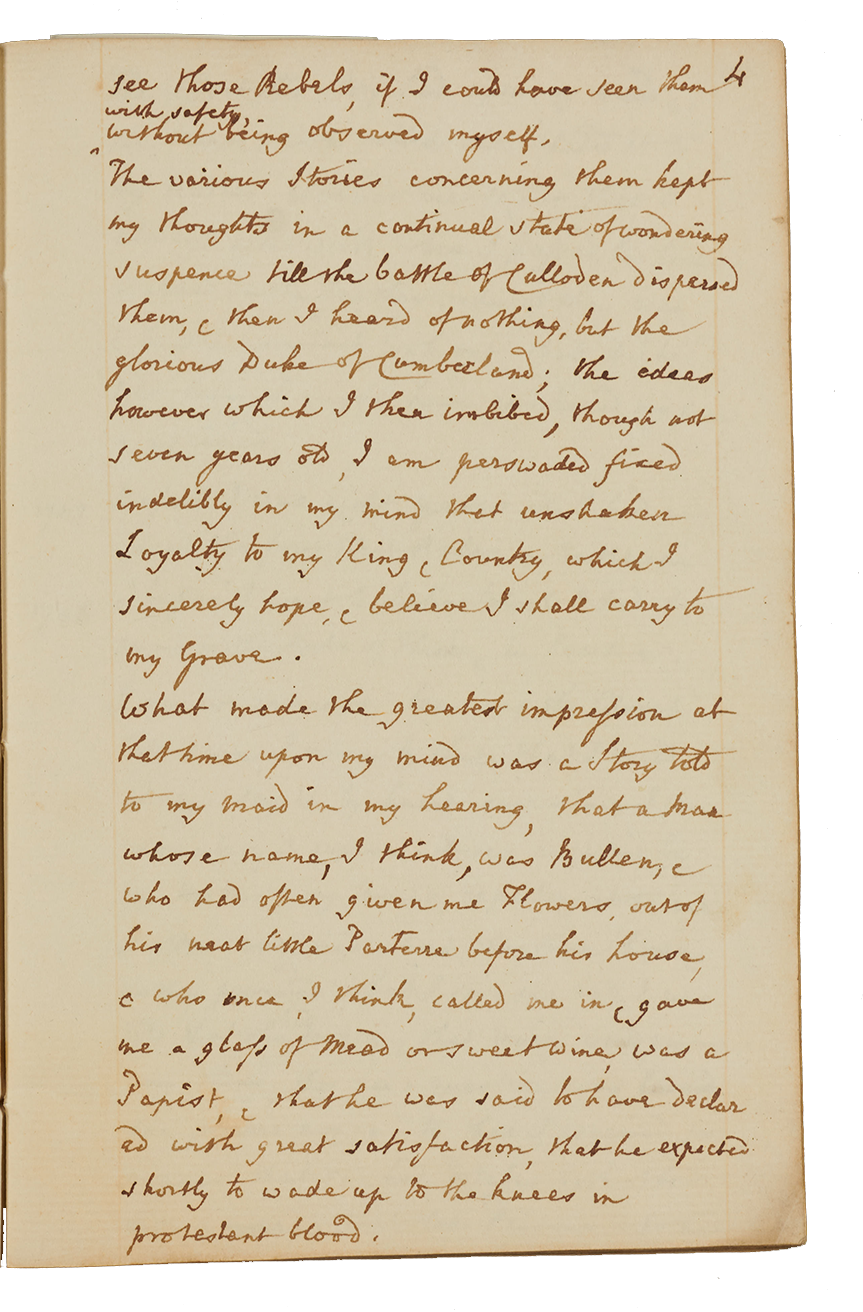 4
see those Rebels, if I could have seen them
with safety,
without being observed myself.
^
The various Stories concerning them kept
my thoughts in a continual state of wondering
suspence till the battle of Culloden dispersed
them, & then I heard of nothing, but the
glorious Duke of Cumberland; the ideas
however which I then imbibed, though not
seven years old, I am perswaded fixed
indelibly in my mind that unshaken
Loyalty to my King & Country, which I
sincerely hope, & believe I shall carry to
my Grave.
What made the greatest impression at
that time upon my mind was a Story told
to my Maid in my hearing, that a Man
whose name, I think, was Bullen, &
who had often given me Flowers, out of
his neat little Parterre before his house,
& who once, I think, called me in & gave
me a glass of Mead or sweet Wine, was a
Papist, & that he was said to have declar
ed with great satisfaction, that he expected
shortly to wade up to the knees in
protestant blood.